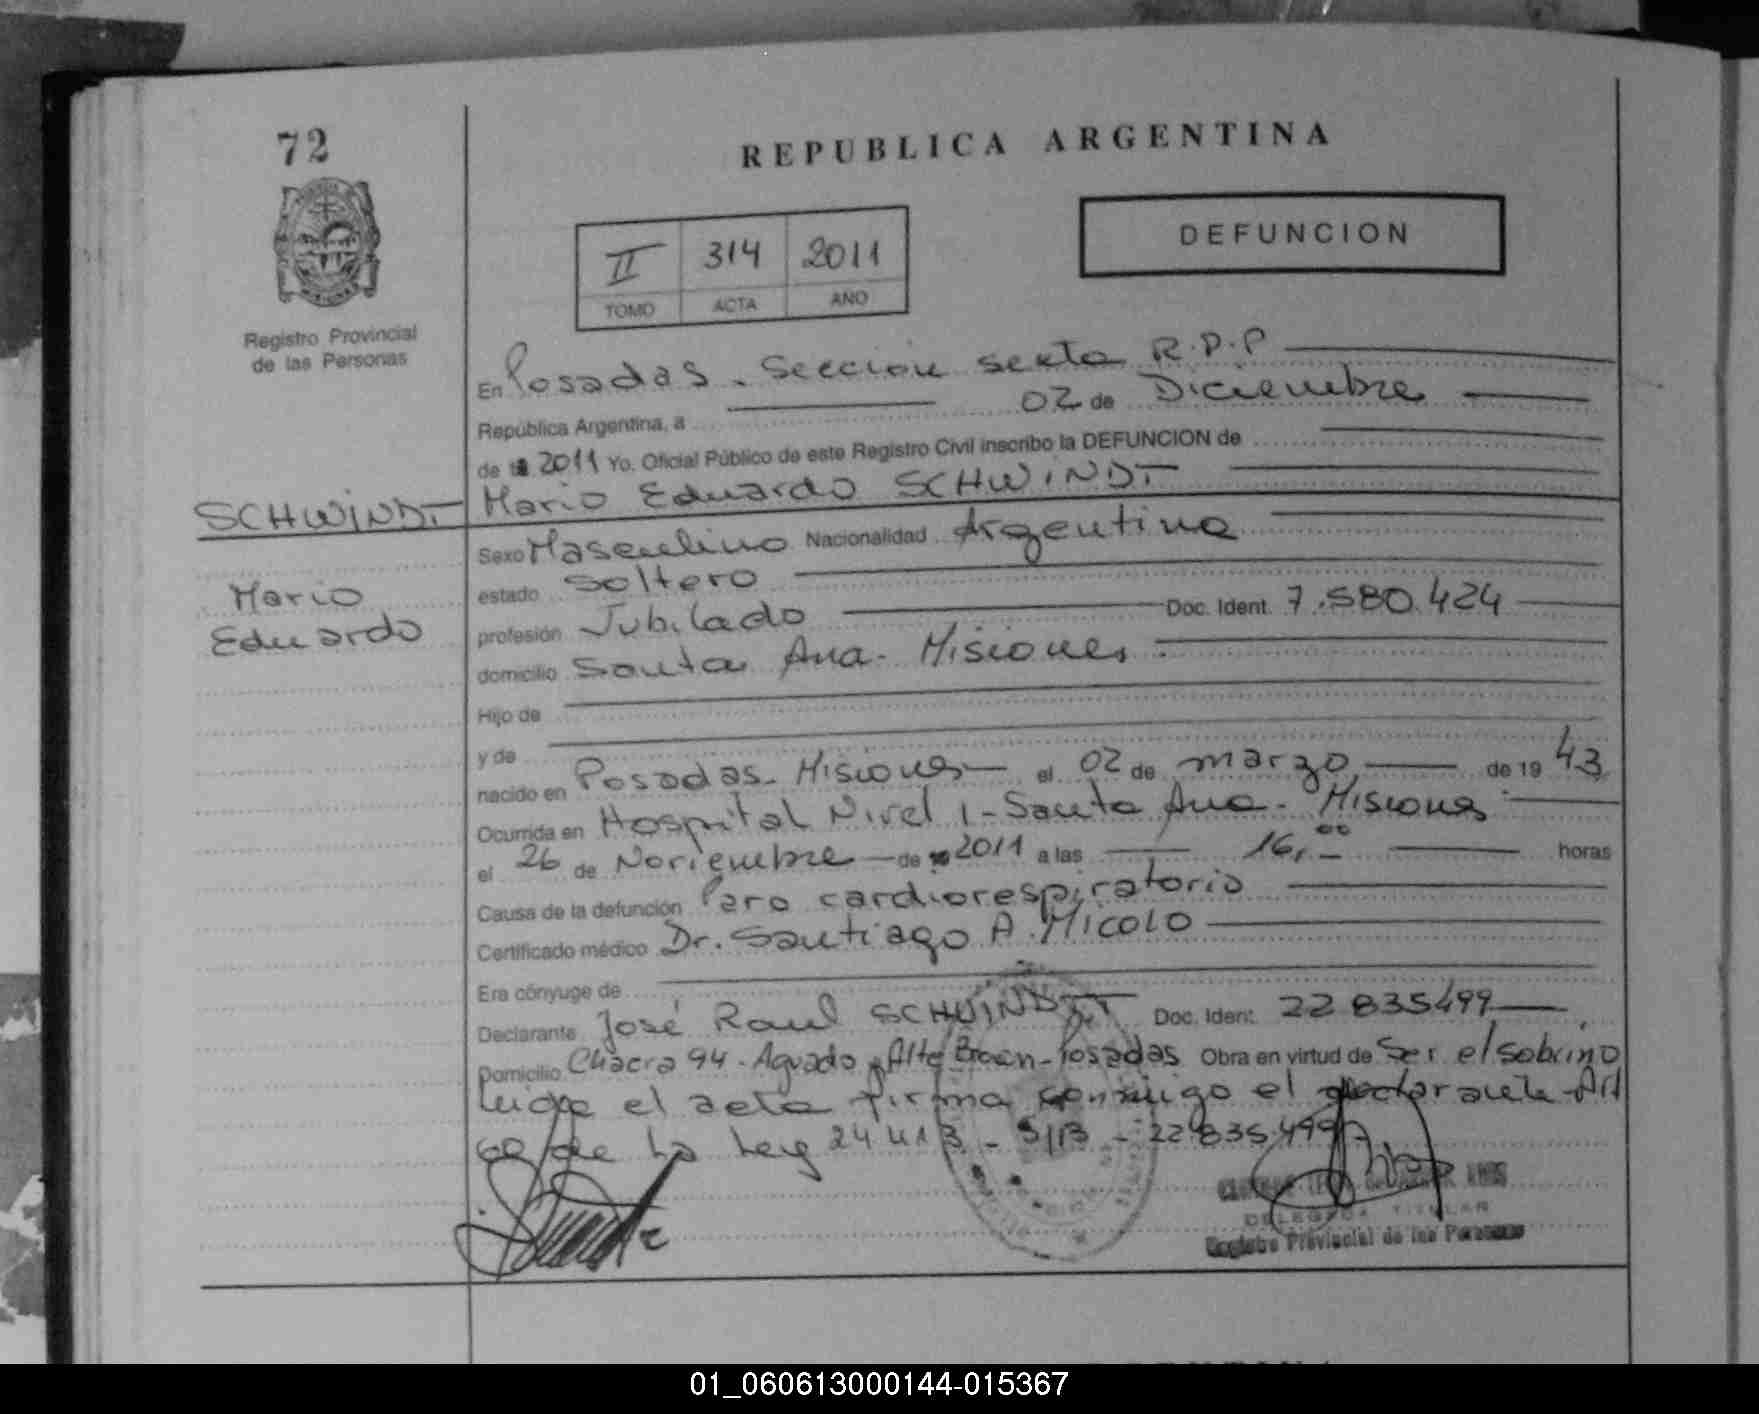 72
REPUBLICA ARGENTINA
DEFUNCION
II 314 2011
TOMO ACTA AÑO
Registro Provincial
de las Personas
En Posadas. Sección sexta R.P.P
República Argentina, a 02 de Diciembre
de 2011 Yo, Oficial Público de este Registro Civil inscribo la DEFUNCION de
SCHWINDT Mario Eduardo SCHWINDT
Sexo Masculino Nacionalidad Argentina
estado Soltero
Mario
Eduardo
profesión Jubilado Doc. Ident. 7.580.424
domicilio Santa Ana - Misiones
Hijo de
y de
nacido en Posadas - Misiones el 02 de marzo de 19 43
Ocurrida en Hospital Nivel 1 - Santa Ana - Misiones
el 26 de Noviembre de 2011 a las 16,00 horas
Causa de la defunción Paro cardiorespiratorio
Certificado médico Dr. Santiago A. MICOLO
Era cónyuge de
Declarante José Raul SCHWINDT Doc. Ident. 22 835499
Domicilio Chacra 94 - Aguado y Alte Brown - Posadas Obra en virtud de Ser el sobrino
Leida el acta firma conmigo el declarante - Art
de la Ley 24413 - 22.835.499
DELEGADA TITULAR
Registro Provincial de las Personas
01_060613000144-015367